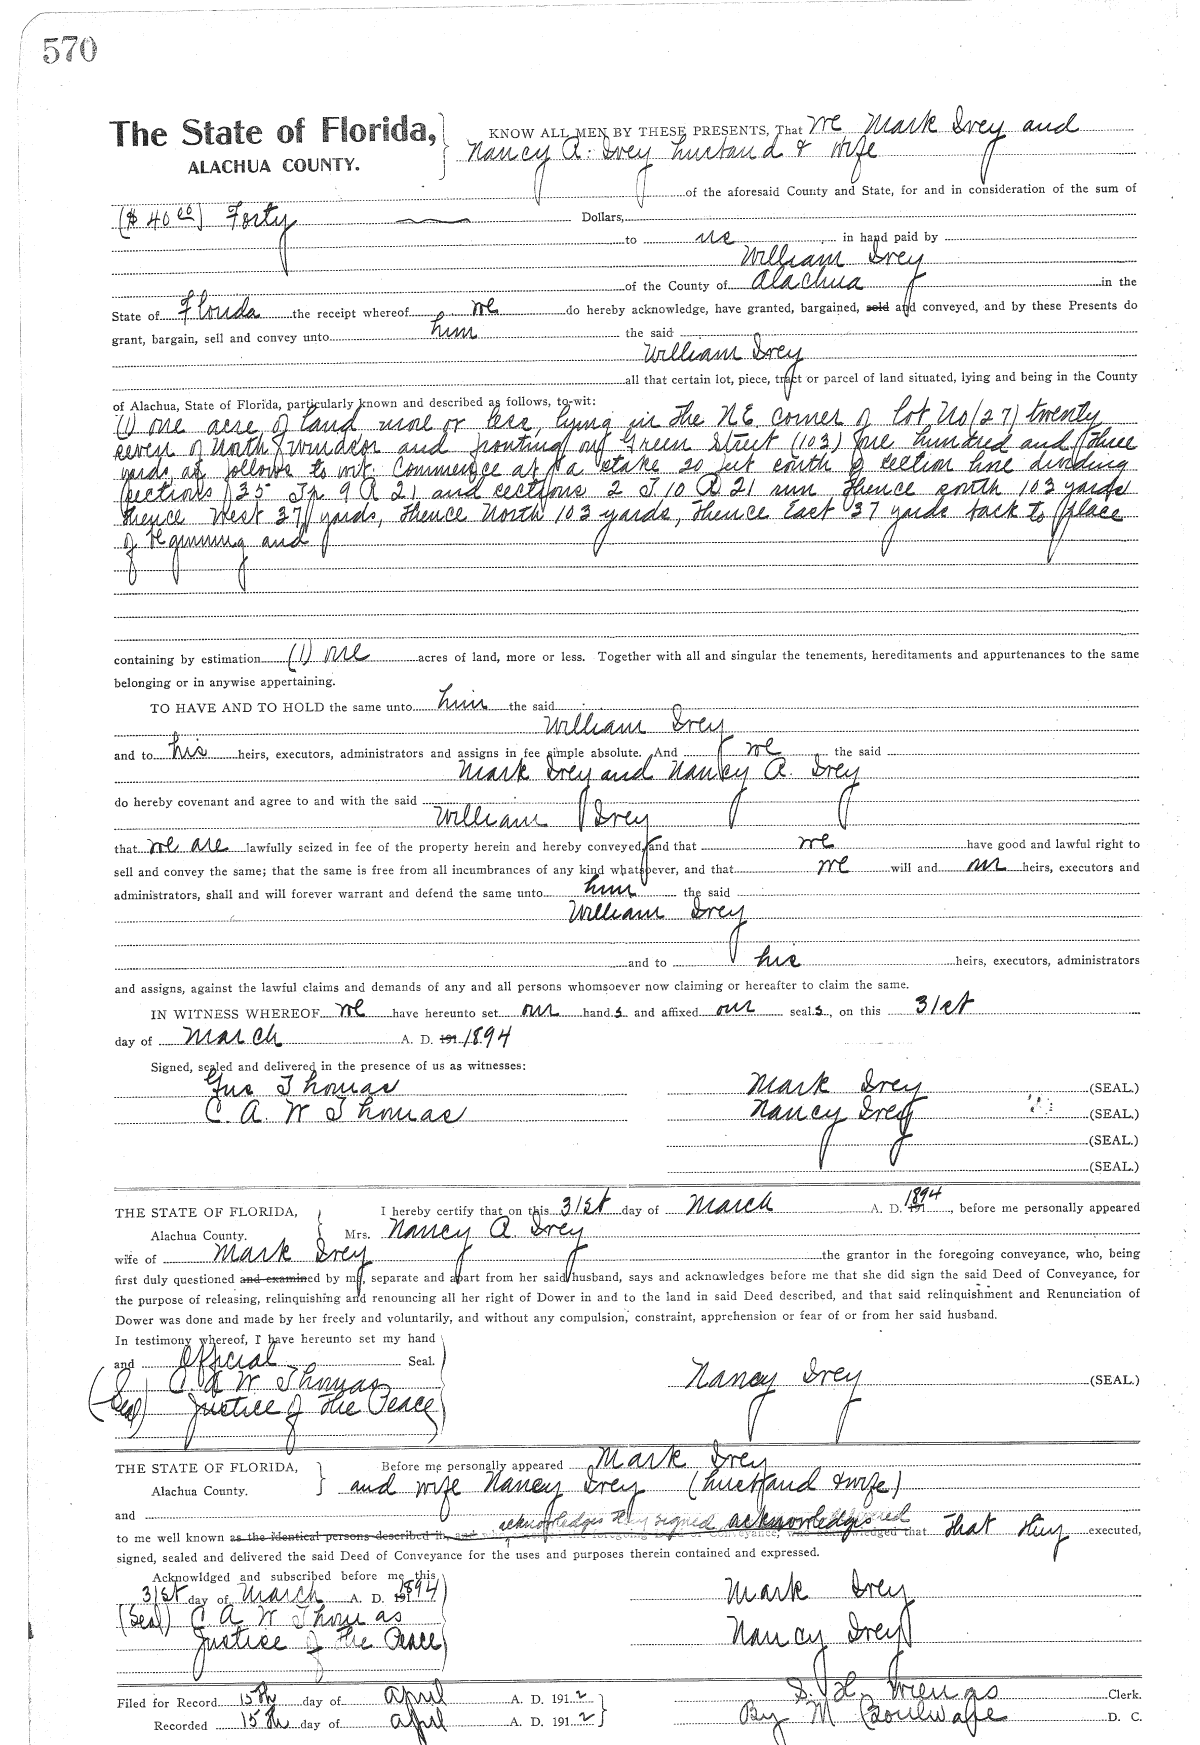 570
The State of Florida,
ALACHUA COUNTY.
KNOW ALL MEN BY THESE PRESENTS, That We Mark Ivey and
Nancy A. Ivey husband & wife
of the aforesaid County and State, for and in consideration of the sum of
($40 00) Forty Dollars,
to us in hand paid by
William Ivey
of the County of Alachua in the
State of Florida the receipt whereof we do hereby acknowledge, have granted, bargained, sold and conveyed, and by these Presents do
grant, bargain, sell and convey unto him the said
William Ivey
all that certain lot, piece, tract or parcel of land situated, lying and being in the County
of Alachua, State of Florida, particularly known and described as follows, to-wit:
(1) one acre of land more or less, lying in the NE corner of lot No (27) twenty
seven of North Windsor and fronting on Green Street (103) one hundred and three
yards, as follows to wit. Commence at a stake 20 feet south of section line dividing
sections 35 Tp 9 R 21 and sections 2 T 10 R 21 run thence south 103 yards
thence West 37 yards, thence North 103 yards, thence East 37 yards back to place
of beginning and
containing by estimation (1) one acres of land, more or less. Together with all and singular the tenements, hereditaments and appurtenances to the same
belonging or in anywise appertaining.
TO HAVE AND TO HOLD the same unto him the said
William Ivey
and to his heirs, executors, administrators and assigns in fee simple absolute. And we the said
Mark Ivey and Nancy A. Ivey
do hereby covenant and agree to and with the said
William Ivey
that we are lawfully seized in fee of the property herein and hereby conveyed, and that we have good and lawful right to
sell and convey the same; that the same is free from all incumbrances of any kind whatsoever, and that we will and our heirs, executors and
administrators, shall and will forever warrant and defend the same unto him the said
William Ivey
and to his heirs, executors, administrators
and assigns, against the lawful claims and demands of any and all persons whomsoever now claiming or hereafter to claim the same.
IN WITNESS WHEREOF we have hereunto set our hands and affixed our seals, on this 31st
day of March A. D. 191 1894
Signed, sealed and delivered in the presence of us as witnesses:
Gus Thomas
C. A. W Thomas
Mark Ivey (SEAL.)
Nancy Ivey (SEAL.)
(SEAL.)
(SEAL.)
THE STATE OF FLORIDA,
Alachua County.
I hereby certify that on this 31st day of March A. D. 191 1894, before me personally appeared
Mrs. Nancy A Ivey
wife of Mark Ivey the grantor in the foregoing conveyance, who, being
first duly questioned and examined by me, separate and apart from her said husband, says and acknawledges before me that she did sign the said Deed of Conveyance, for
the purpose of releasing, relinquishing and renouncing all her right of Dower in and to the land in said Deed described, and that said relinquishment and Renunciation of
Dower was done and made by her freely and voluntarily, and without any compulsion, constraint, apprehension or fear of or from her said husband.
In testimony whereof, I have hereunto set my hand
and Official Seal.
C. A W Thomas
(Seal) Justice of the Peace
Nancy Ivey (SEAL.)
THE STATE OF FLORIDA,
Alachua County.
Before me personally appeared Mark Ivey
and wife Nancy Ivey (husband & wife)
and
to me well known as the identical persons described in, and acknowledges they signed acknowledged that that they executed,
signed, sealed and delivered the said Deed of Conveyance for the uses and purposes therein contained and expressed.
Acknowldged and subscribed before me this
31st day of March A. D. 191 1894
(Seal) C A W Thomas
Justice of the Peace
Mark Ivey
Nancy Ivey
Filed for Record 15th day of April A. D. 1912
Recorded 15th day of April A. D. 1912
S. H. Wienges Clerk.
By M Boulware D. C.